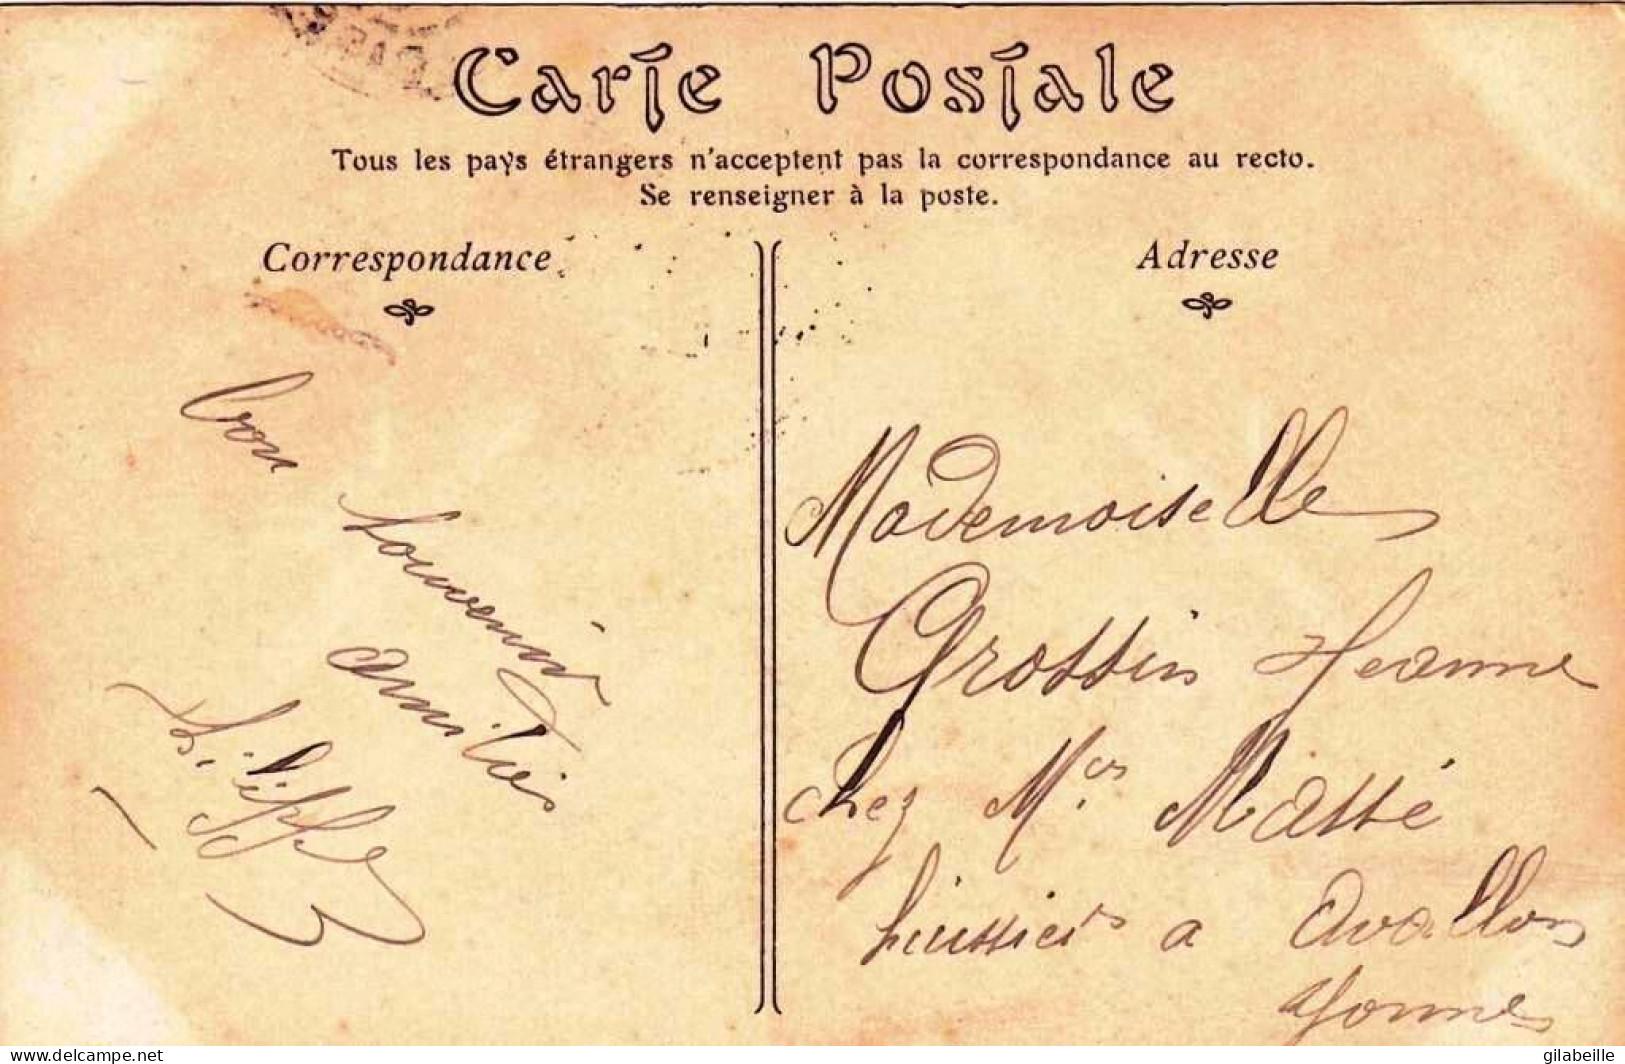 Carte Postale
Tous les pays étrangers n'acceptent pas la correspondance au recto.
Se renseigner à la poste.
Correspondance
Adresse
bon
souvenir
amitiés
Mademoiselle
Grossin Jeanne
chez Mr Massé
huissier a Avallon
Yonne
www.delcampe.net
gilabeille